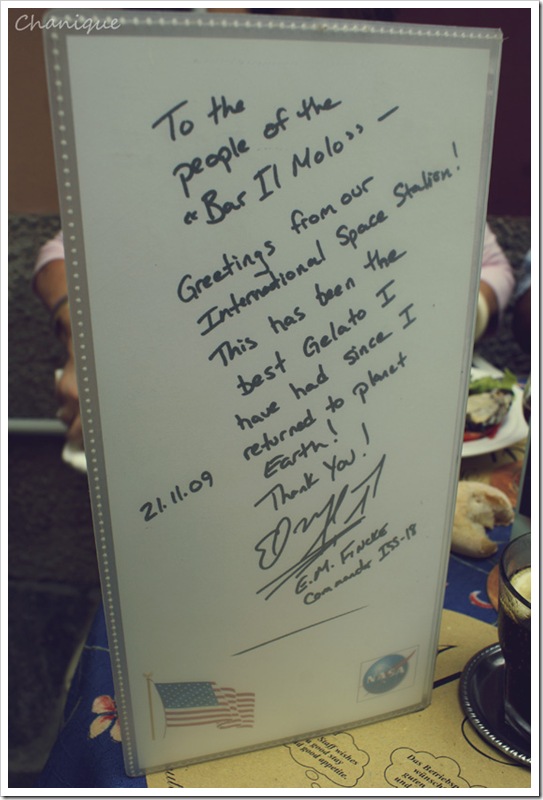 Chanique
To the
people of the
"Bar Il Molo" —
Greetings from our
International Space Station!
This has been the
best Gelato I
have had since I
returned to planet
Earth!
Thank You!
21.11.09
E.M. FINCKE
Commander ISS-18
NASA
Staff wishes
good stay
good appetite.
Das Betriebsp
wünsch
guten
und